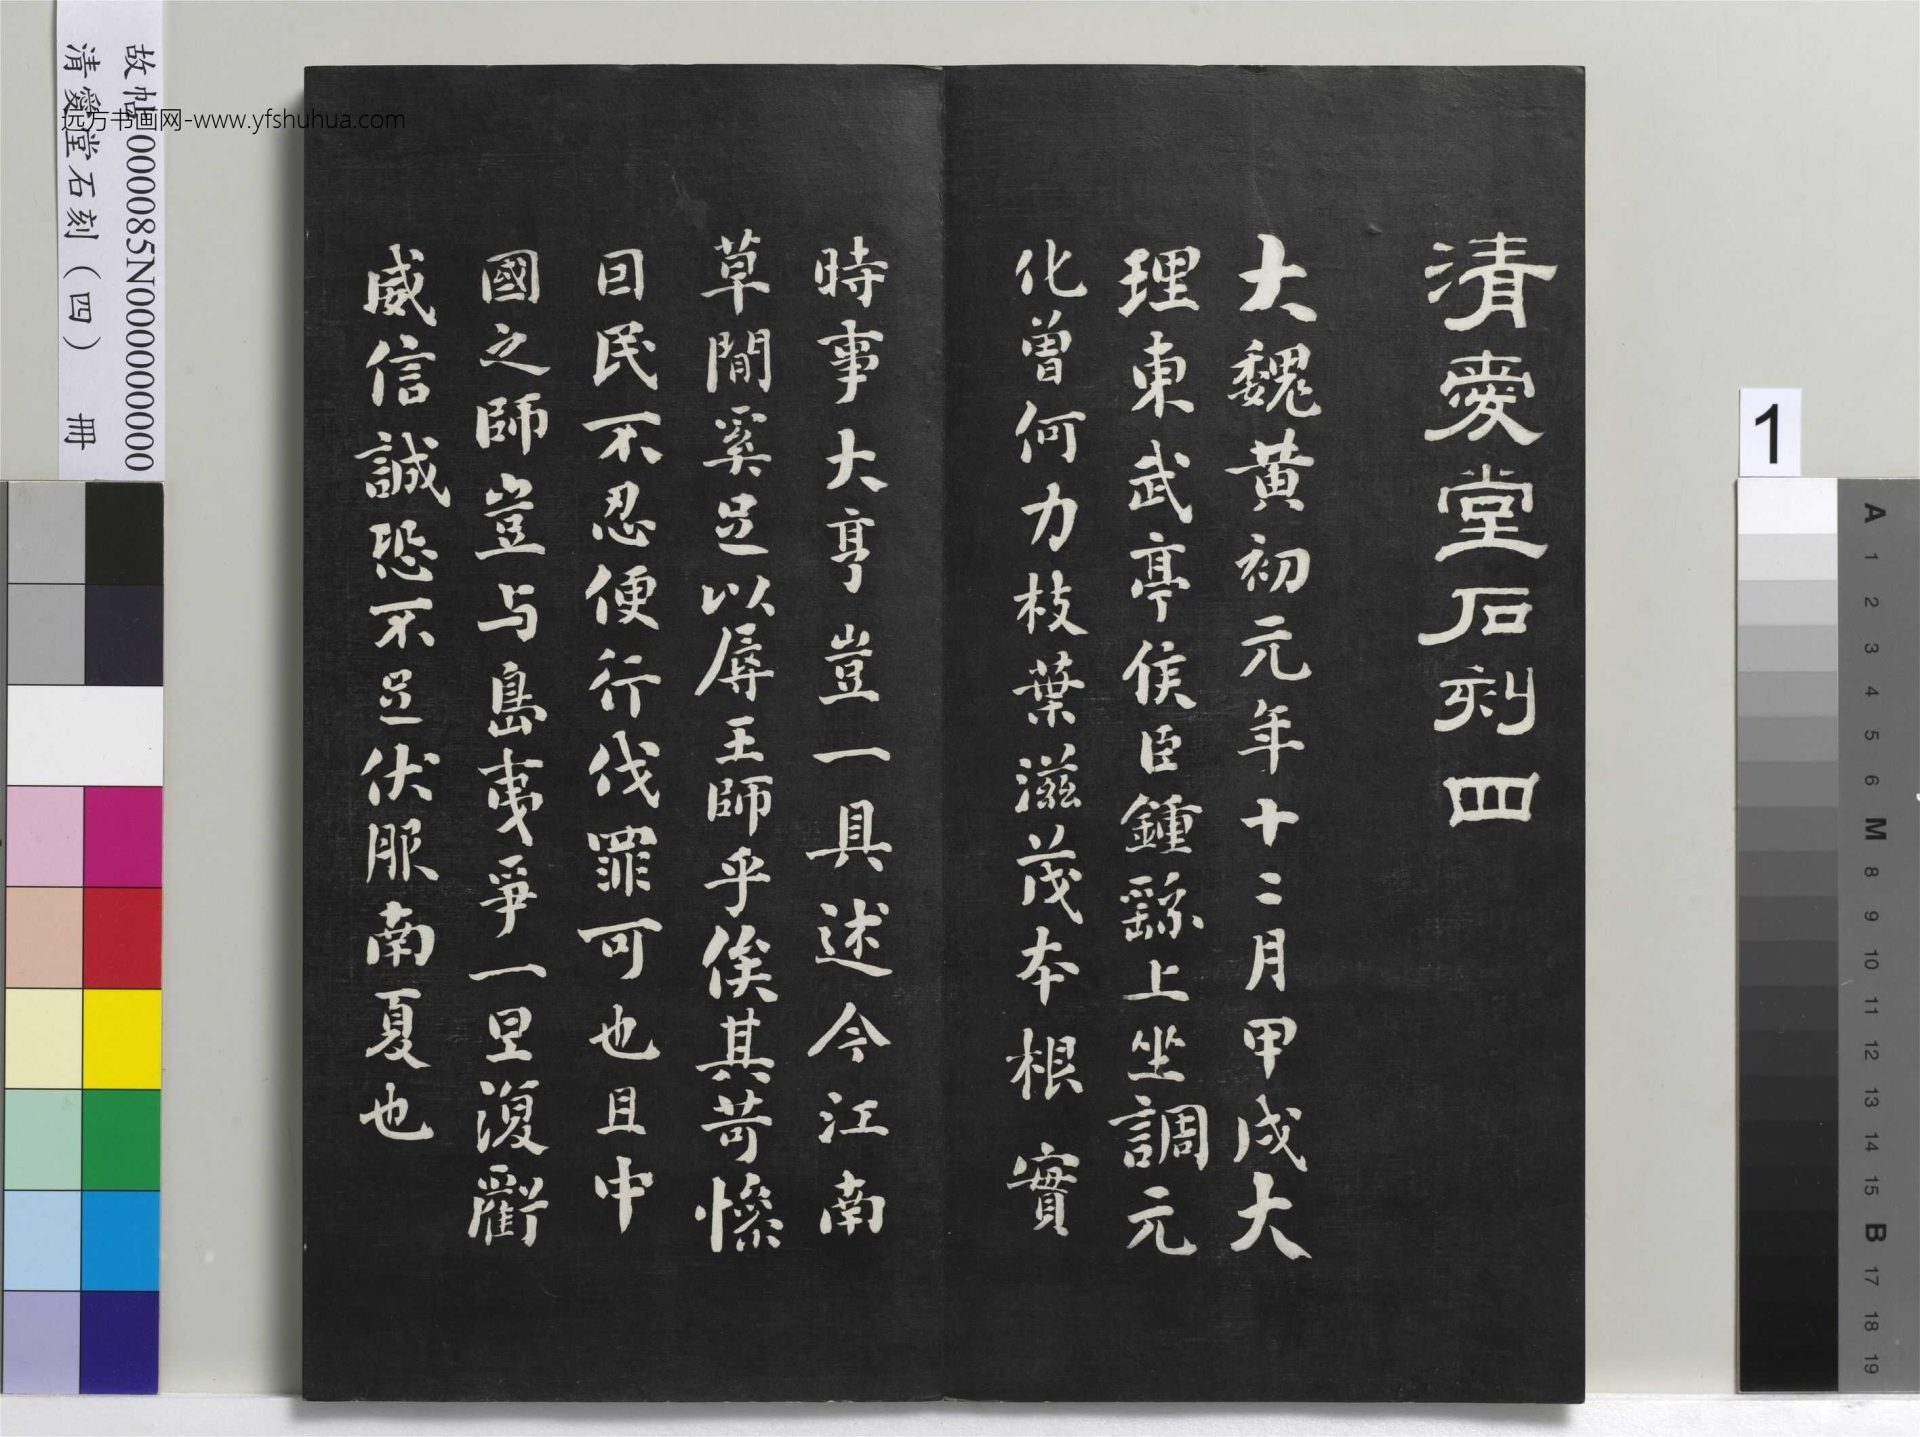 清愛堂石刻四
大魏黃初元年十二月甲戌大
理東武亭侯臣鍾繇上坐調元
化曾何力枝葉滋茂本根實
時事大亨豈一具述今江南
草間奚足以辱王師乎俟其苛慘
囙民不忍便行伐罪可也且中
國之師豈与島夷爭一旦復鬭
威信誠恐不足伏服南夏也
故帖000085N000000000
清愛堂石刻（四） 冊
远方书画网-www.yfshuhua.com
1
A
1
2
3
4
5
6
M
8
9
10
11
12
13
14
15
B
17
18
19